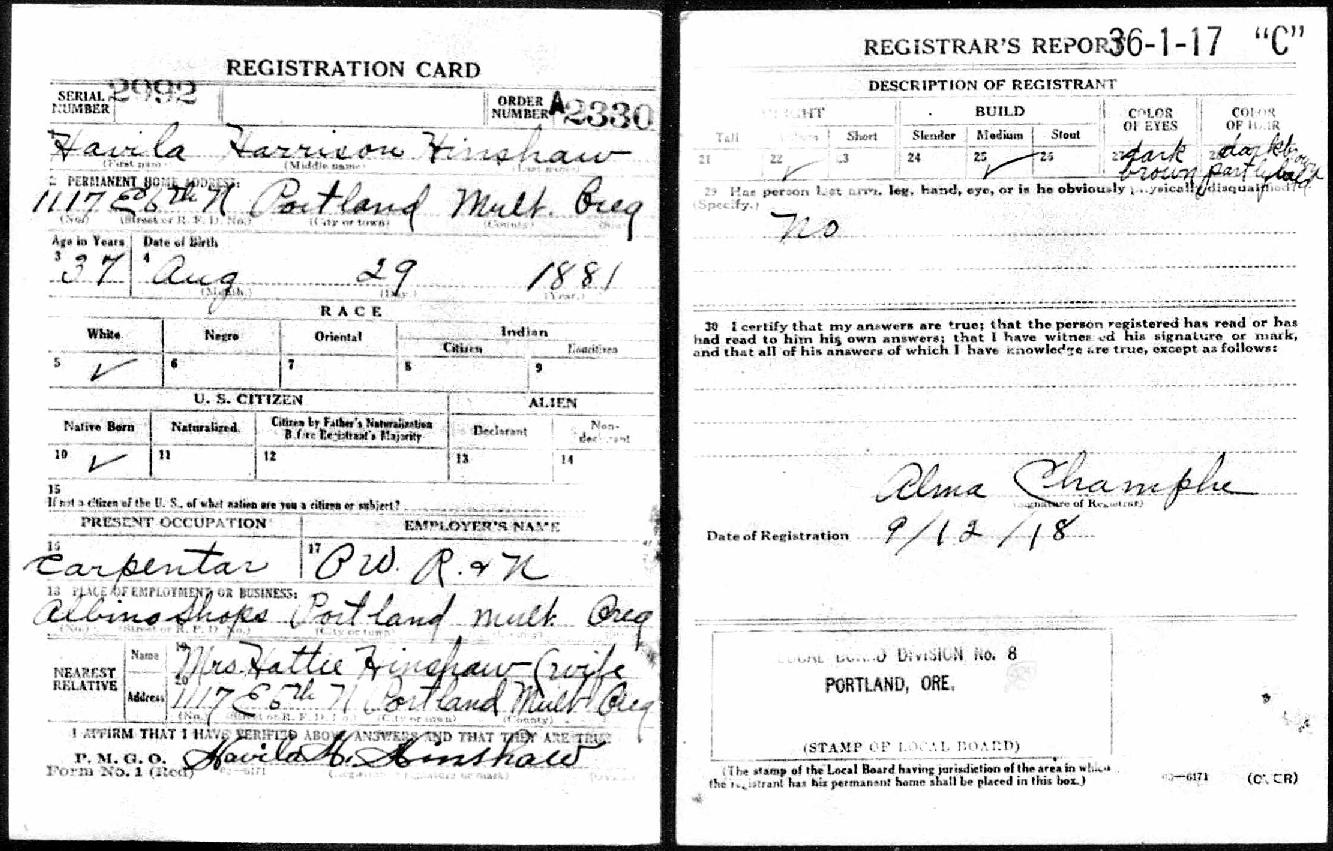 REGISTRATION CARD
SERIAL NUMBER 2992
ORDER NUMBER A2330
Havila Harrison Hinshaw
(First name) (Middle name) (Last name)
2 PERMANENT HOME ADDRESS:
1117 E 6th N Portland Mult. Oreg
(No.) (Street or R. F. D. No.) (City or town) (County)
Age in Years Date of Birth
3 37 4 Aug 29 1881
(Month.) (Day.) (Year.)
RACE
White Negro Oriental Indian
Citizen Noncitizen
5 ✓ 6 7 8 9
U. S. CITIZEN ALIEN
Native Born Naturalized. Citizen by Father's Naturalization Before Registrant's Majority Declarant Non-declarant
10 ✓ 11 12 13 14
15
If not a citizen of the U. S., of what nation are you a citizen or subject?
PRESENT OCCUPATION EMPLOYER'S NAME
16 Carpentar 17 O W. R. & N
18 PLACE OF EMPLOYMENT OR BUSINESS:
Albina Shops Portland Mult. Oreg
(No.) (Street or R. F. D. No.) (City or town) (County)
NEAREST RELATIVE
Name 19 Mrs. Hattie Hinshaw (wife
Address 20 1117 E 6th N Portland Mult Oreg
(No.) (Street or R. F. D. No.) (City or town) (County)
I AFFIRM THAT I HAVE VERIFIED ABOVE ANSWERS AND THAT THEY ARE TRUE
P. M. G. O.
Form No. 1 (Red) Havila H. Hinshaw
REGISTRAR'S REPORT 36-1-17 "C"
DESCRIPTION OF REGISTRANT
HEIGHT BUILD COLOR OF EYES COLOR OF HAIR
Tall Medium Short Slender Medium Stout
21 22 ✓ 23 24 25 ✓ 26 27 dark brown 28 dark brown partly bald
29 Has person lost arm, leg, hand, eye, or is he obviously physically disqualified?
(Specify.)
No
30 I certify that my answers are true; that the person registered has read or has
had read to him his own answers; that I have witnessed his signature or mark,
and that all of his answers of which I have knowledge are true, except as follows:
Alma
(Signature of Registrar)
Date of Registration 9/12/18
LOCAL BOARD DIVISION No. 8
PORTLAND, ORE.
(STAMP OF LOCAL BOARD)
(The stamp of the Local Board having jurisdiction of the area in which
the registrant has his permanent home shall be placed in this box.)
03—6171 (OVER)